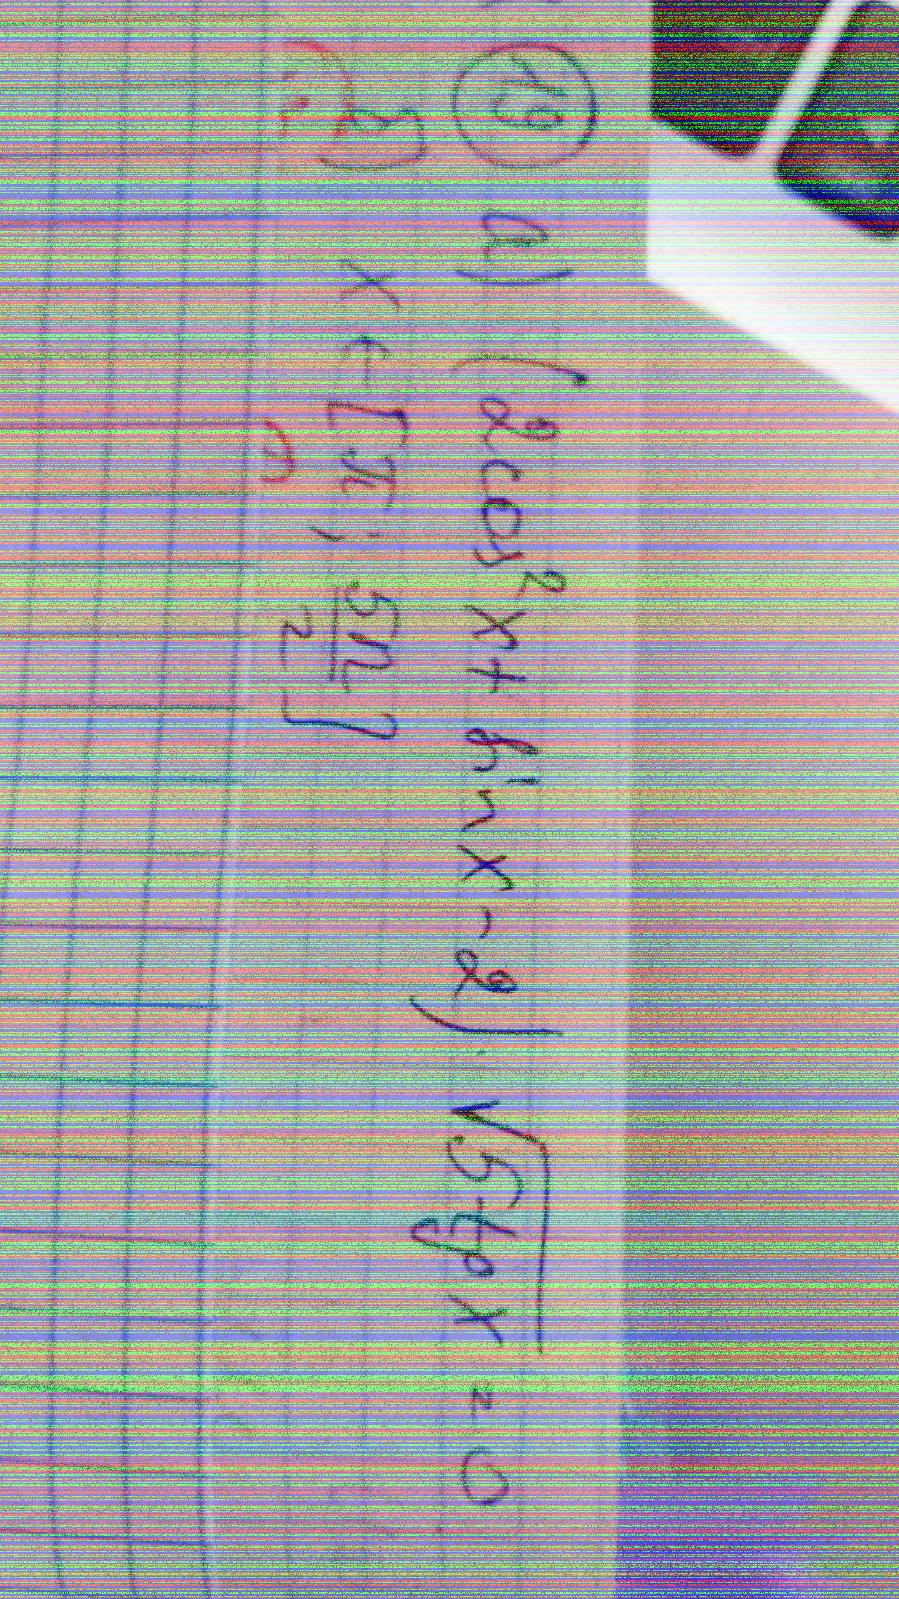 19 а) (2cos²x + sinx - 2) · √5tgx = 0
б) x ∈ [π; 5π/2]